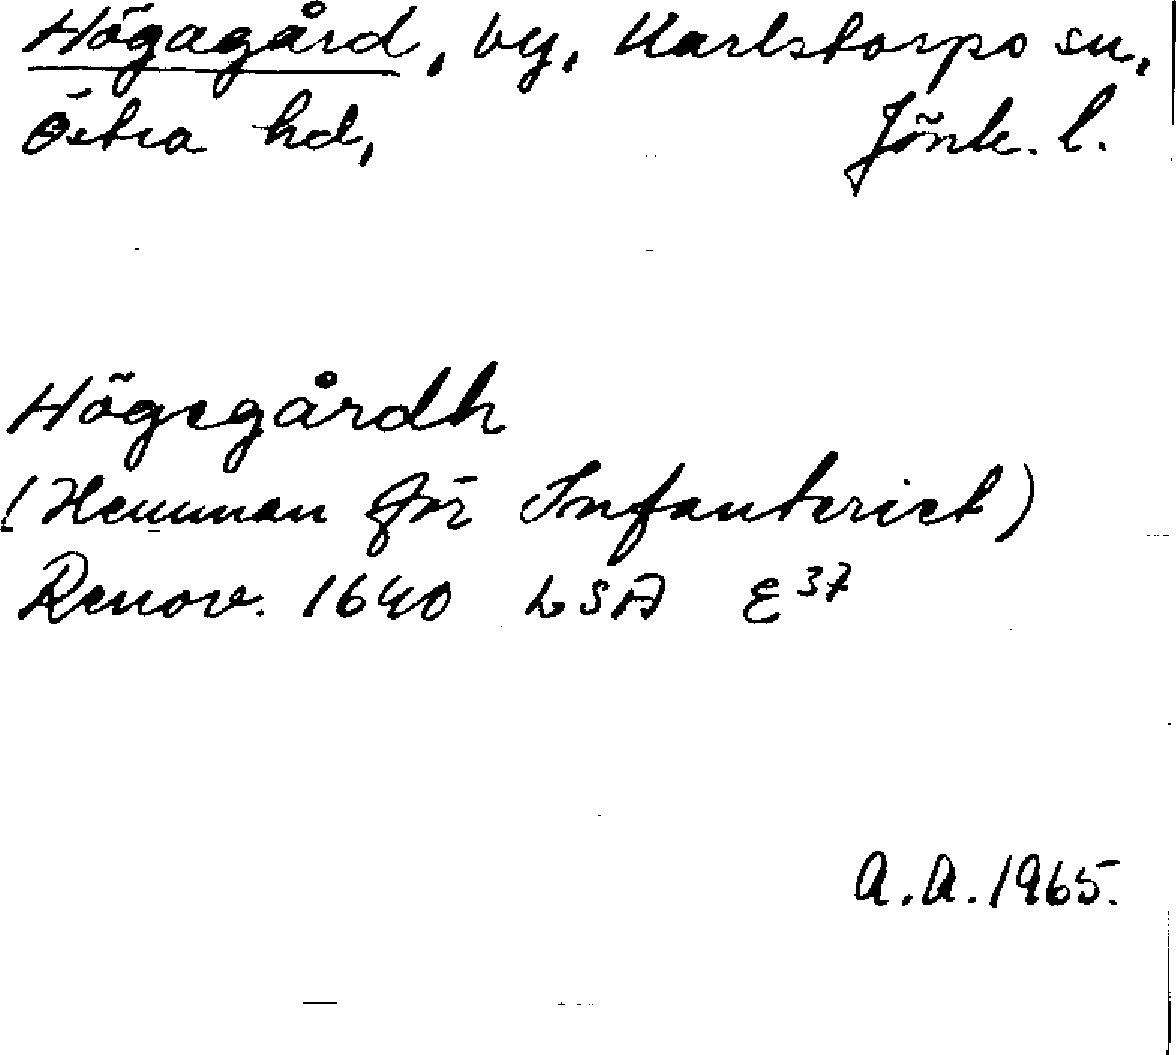 Högagård, by, Karlstorps sn,
Östra hd, Jönk. l.
Högegårdh
(Hemman för Infanteriet)
Renov. 1640 LSA E³⁷
A.A. 1965.